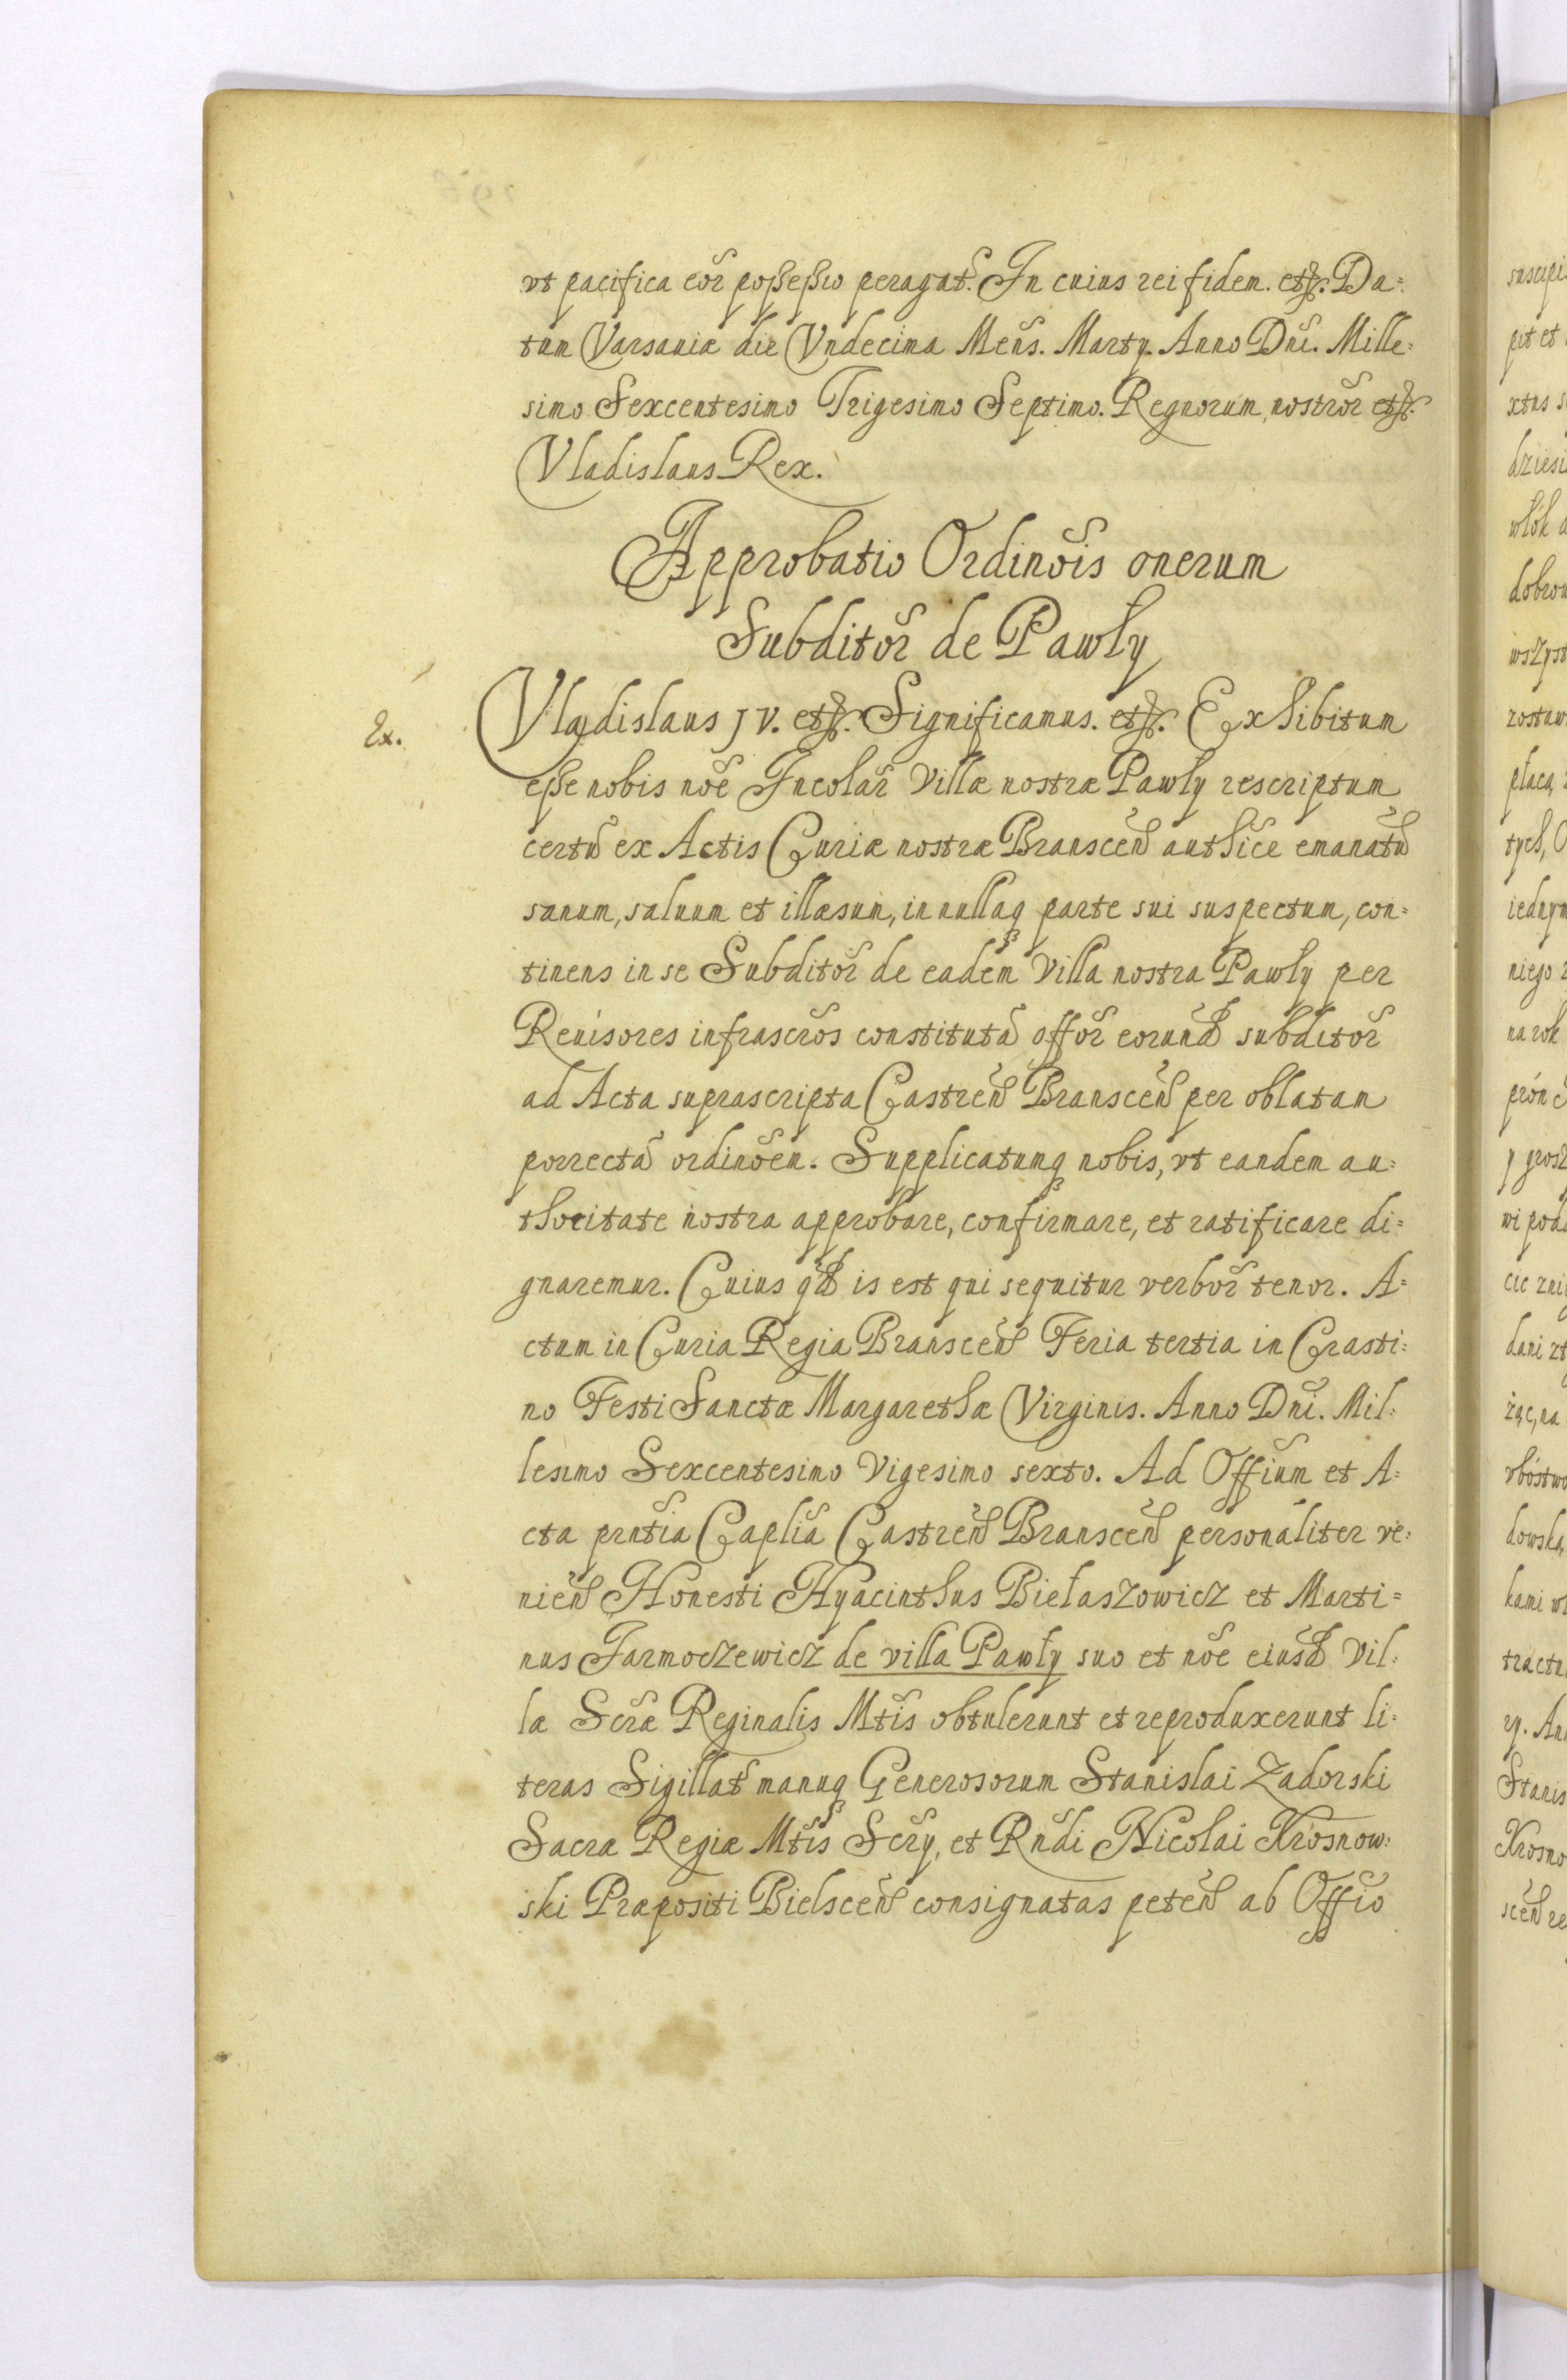 vt pacifica eor̃ poßeßio peragat̃. In cuius rei fidem. etc̃. Da=
tum Varsauiæ die Vndecima Meñs. Martÿ. Anno Dñi. Mille=
simo Sexcentesimo Trigesimo Septimo. Regnorum nostror̃ etc̃.
Vladislaus Rex.
Approbatio Ordinõis onerum
Subditor̃ de Pawły
Ex.
Vladislaus JV. etc̃. Significamus. etc̃. Exhibitum
eße nobis nõe Incolar̃ Villæ nostræ Pawły rescriptum
certũ ex Actis Curiæ nostræ Branscen̄ authc̃e emanatũ
sanum, saluum et illæsum, in nullaq̃ parte sui suspectum, con=
tinens in se Subditor̃ de eadem̃ Villa nostra Pawły per
Reuisores infrascr̃os constitutã offor̃ eorund̃ subditor̃
ad Acta suprascripta Castren̄ Branscen̄ per oblatam
porrectã ordinõem. Supplicatumq̃ nobis, vt eandem au=
thoritate nostra approbare, confirmare, et ratificare di=
gnaremur. Cuius qd̃ is est qui sequitur verbor̃ tenor. A=
ctum in Curia Regia Branscen̄ Feria tertia in Crasti=
no Festi Sanctæ Margarethæ Virginis. Anno Dñi. Mil=
lesimo Sexcentesimo Vigesimo sexto. Ad Offĩum et A=
cta prñtia Caplĩa Castren̄ Branscen̄ personaliter ve=
nien̄ Honesti Hyacinthus Biełaszowicz et Marti=
nus Jarmoczewicz de villa Pawły suo et nõe eiusd̃ Vil=
læ Scr̃æ Reginalis Mt̃is obtulerunt et reproduxerunt li=
teras Sigillat̃ manuq̃ Generosorum Stanislai Zadorski
Sacræ Regiæ Mt̃is Scr̃ÿ, et Rñdi Nicolai Krosnow=
ski Præpositi Bielscen̄ consignatas peten̄ ab Offĩo